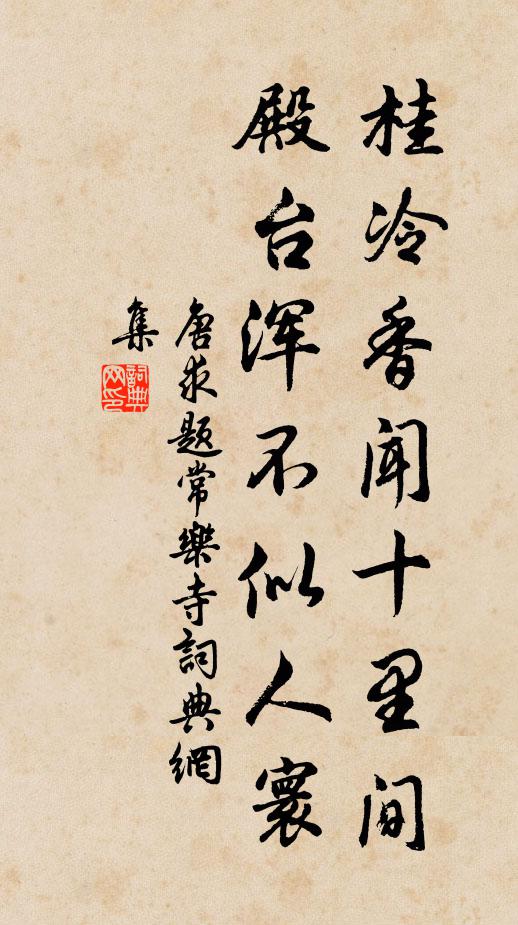 桂冷香闻十里间
殿台浑不似人寰
唐求题常樂寺詞典網
集
詞典网印